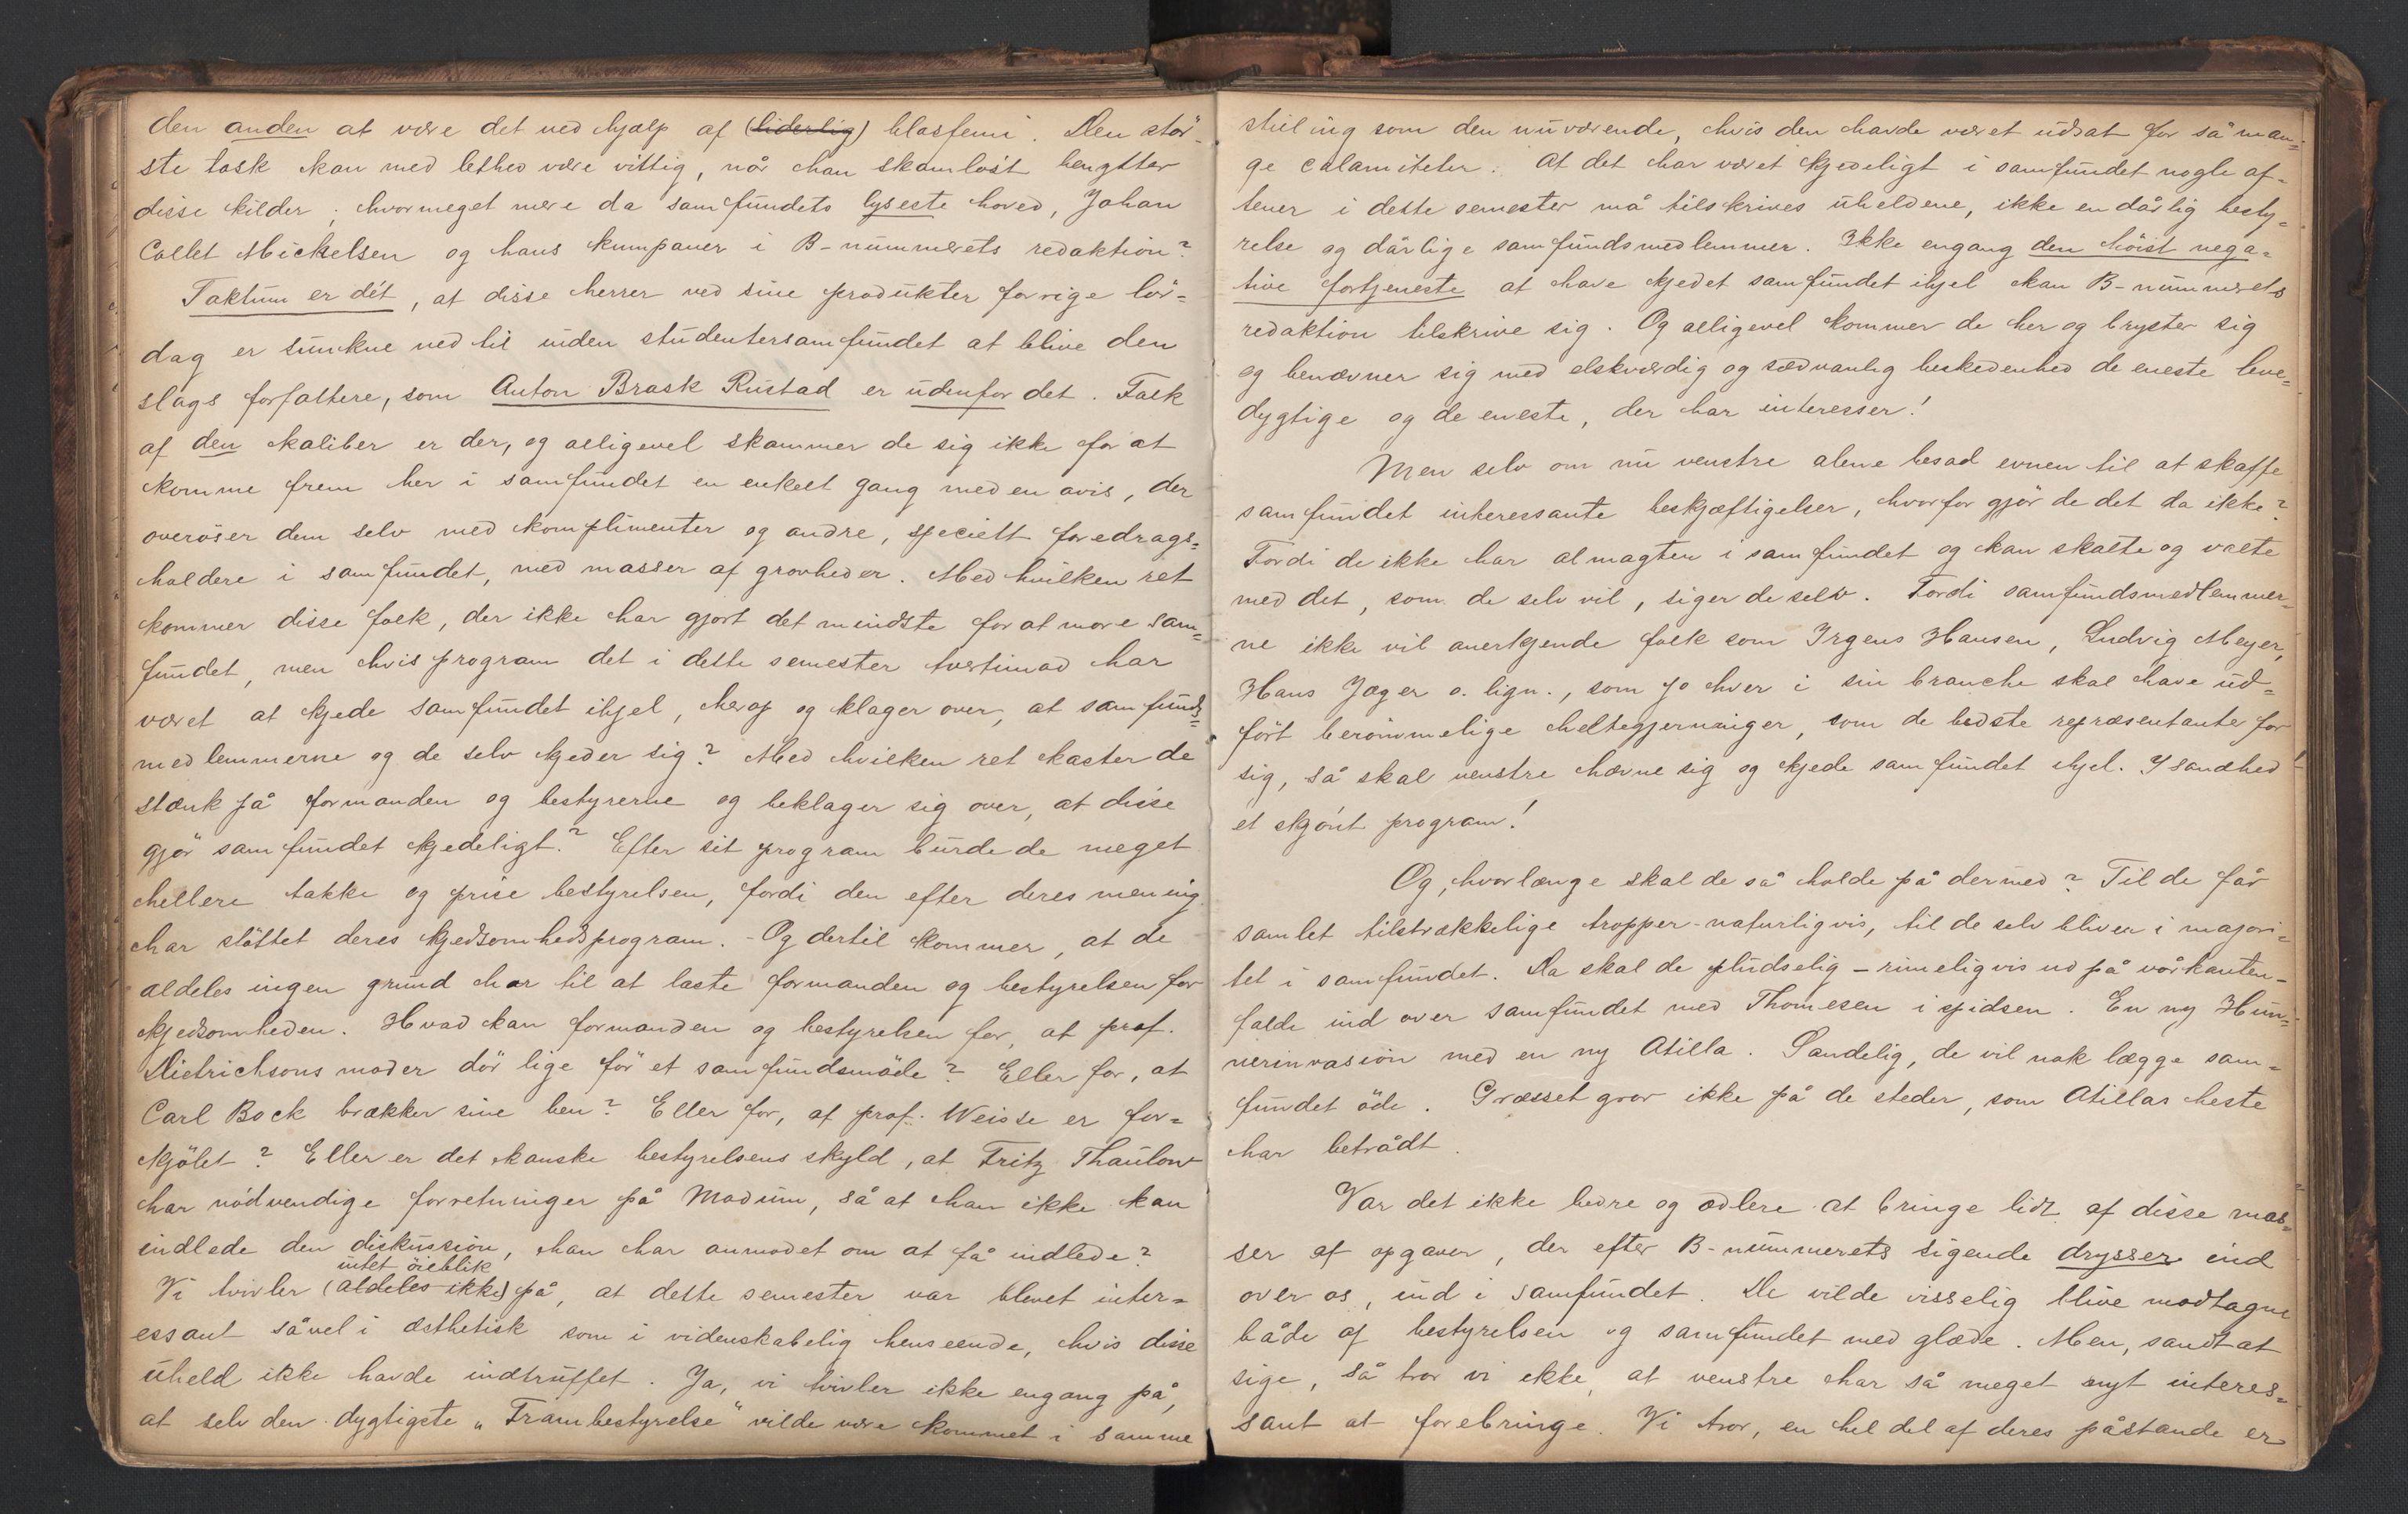 den anden at være det ved hjælp af (liderlig) blasfemi. Den stör-
ste tosk kan med lethed være vittig, når han skamlöst benytter
disse kilder; hvormeget mere da samfundets lyseste hoved, Johan
Collet Michelsen og hans kumpaner i B-nummerets redaktion?
Faktum er dét, at disse herrer ved sine produkter forrige lör-
dag er sunkne ned til inden studentersamfundet at blive den
slags forfattere, som Anton Brask Rustad er udenfor det. Folk
af den kaliber er der, og alligevel skammer de sig ikke for at
komme frem her i samfundet en enkelt gang med en avis, der
overöser dem selv med komplimenter og andre, specielt foredrags-
holdere i samfundet, med masser af grovheder. Med hvilken ret
kommer disse folk, der ikke har gjort det mindste for at more sam-
fundet, men hvis program det i dette semester tvertimod har
været at kjede samfundet ihjel, herop og klager over, at samfunds-
medlemmerne og de selv kjeder sig? Med hvilken ret kaster de
stænk på formanden og bestyrerne og beklager sig over, at disse
gjör samfundet kjedeligt? Efter sit program burde de meget
hellere takke og prise bestyrelsen, fordi den efter deres mening
har stöttet deres kjedsomhedsprogram. - Og dertil kommer, at de
aldeles ingen grund har til at laste formanden og bestyrelsen for
kjedsomheden. Hvad kan formanden og bestyrelsen for, at prof.
Dietrichsons moder dör lige för et samfundsmöde? Eller for, at
Carl Bock brækker sine ben? Eller for, at prof. Weisse er for-
kjölet? Eller er det kanske bestyrelsens skyld, at Fritz Thaulow
har nödvendige forretninger på Modum, så at han ikke kan
indlede den diskussion, han har anmodet om at få indlede?
intet öieblik
Vi tvivler (aldeles ikke) på, at dette semester var blevet inter-
essant såvel i æsthetisk som i videnskabelig henseende, hvis disse
uheld ikke havde indtruffet. Ja, vi tvivler ikke engang på,
at selv den dygtigste „Frambestyrelse“ vilde være kommet i samme
stilling som den nuværende, hvis den havde været udsat for så man-
ge calamiteter. At det har været kjedeligt i samfundet nogle af-
tener i dette semester må tilskrives uheldene, ikke en dårlig besty-
relse og dårlige samfundsmedlemmer. Ikke engang den höist nega-
tive fortjeneste at have kjedet samfundet ihjel kan B-nummerets
redaktion tilskrive sig. Og alligevel kommer de her og bryster sig
og benævner sig med elskværdig og sædvanlig beskedenhed de eneste leve-
dygtige og de eneste, der har interesser!
Men selv om nu venstre alene besad evnen til at skaffe
samfundet interessante beskjæftigelser, hvorfor gjör de det da ikke?
Fordi de ikke har almagten i samfundet og kan skalte og valte
med det, som de selv vil, siger de selv. Fordi samfundsmedlemmer-
ne ikke vil anerkjende folk som Irgens Hansen, Ludvig Meyer,
Hans Jæger o. lign., som jo hver i sin branche skal have ud-
fört berömmelige heltegjerninger, som de bedste repræsentanter for
sig, så skal venstre hævne sig og kjede samfundet ihjel. I sandhed
et skjönt program!
Og, hvorlænge skal de så holde på dermed? Til de får
samlet tilstrækkelige tropper - naturligvis, til de selv bliver i majori-
tet i samfundet. Da skal de pludselig - rimeligvis ud på vårkanten -
falde ind over samfundet med Thomesen i spidsen. En ny Hun-
nerinvasion med en ny Atilla. Sandelig, de vil nok lægge sam-
fundet öde. Græsset gror ikke på de steder, som Atillas heste
har betrådt.
Var det ikke bedre og ædlere at bringe lidt af disse mas-
ser af opgaver, der efter B-nummerets sigende drysser ind
over os, ind i samfundet. De vilde visselig blive modtagne
både af bestyrelsen og samfundet med glæde. Men, sandt at
sige, så tror vi ikke, at venstre har så meget nyt interes-
sant at forebringe. Vi tror, en hel del af deres påstande er